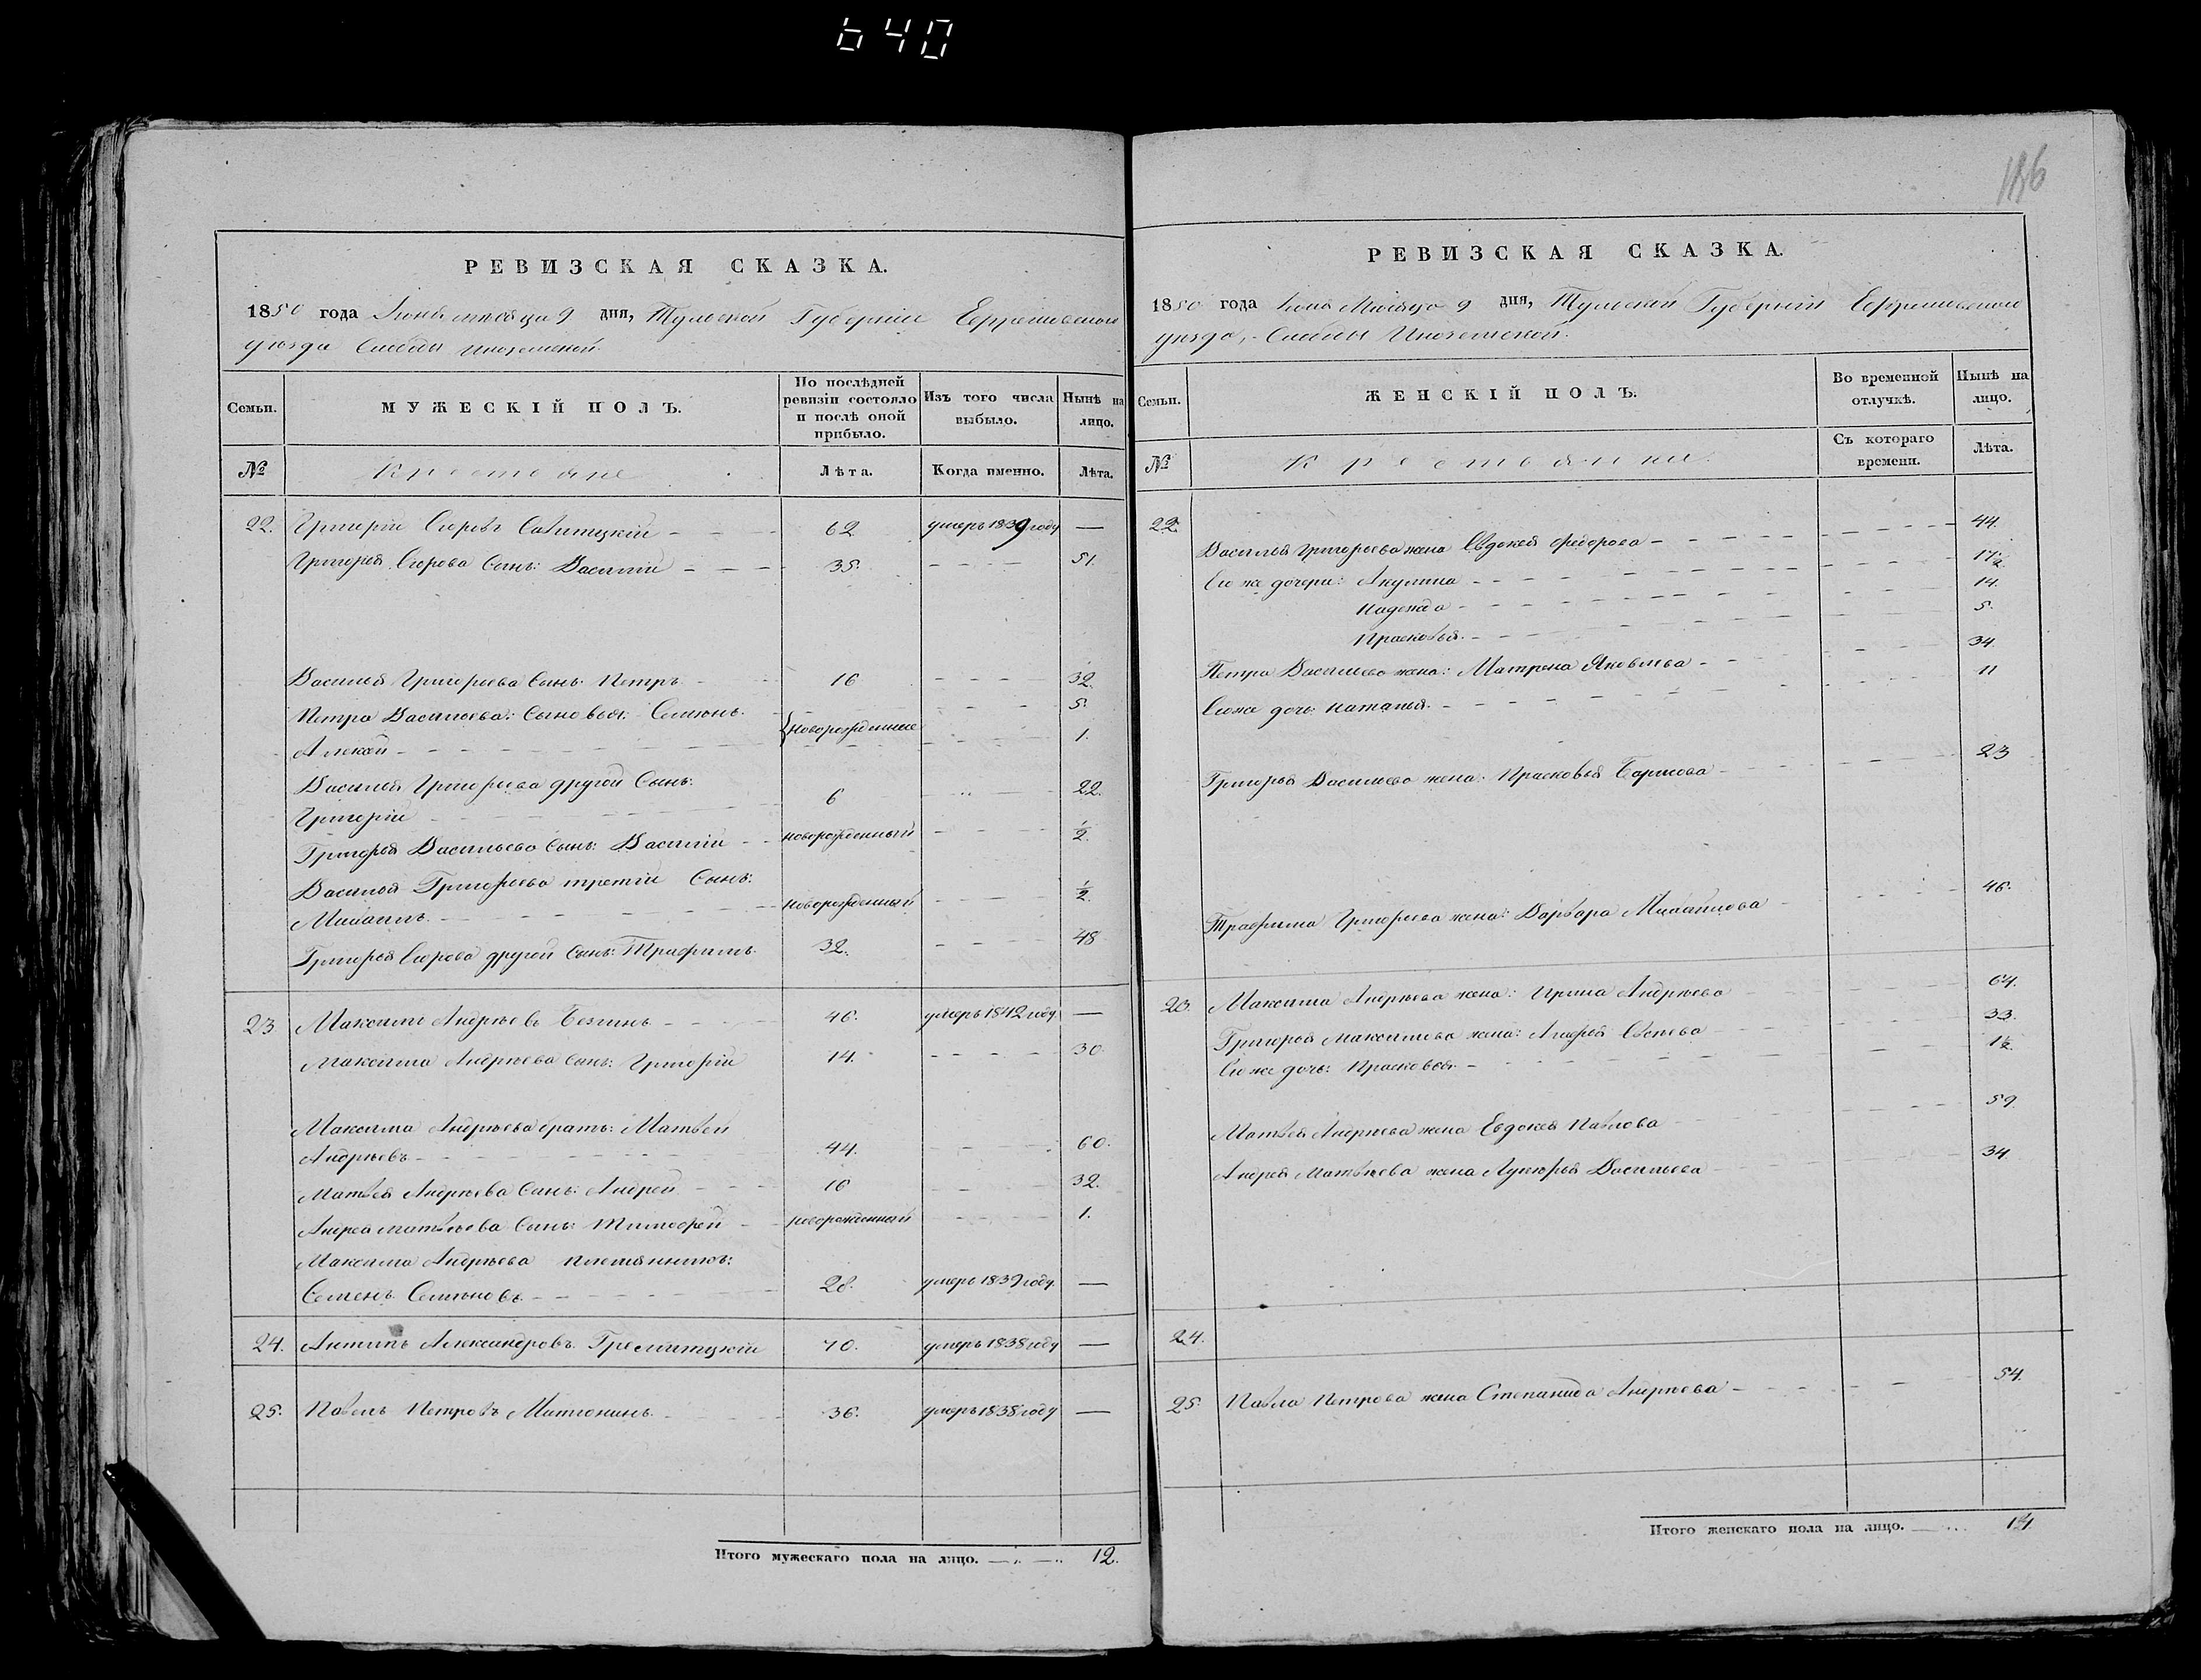 640
186
РЕВИЗСКАЯ СКАЗКА.
1850 года Іюня месяца 9 дня, Тульской Губерніи Ефремовскаго
уезда Слободы Иноземской.
Семьи.
МУЖЕСКІЙ ПОЛЪ.
По послѣдней ревизіи состояло и послѣ оной прибыло.
Изъ того числа выбыло.
Нынѣ на лицо.
№
Крестьяне
Лѣта.
Когда именно.
Лѣта.
22. Григорій Егоровъ 62 умеръ 1839 году —
Григорья Егорова Сынъ: Василий 35. 51.
Василья Григорьева Сынъ: Петръ 16 32.
Петра Васильева: Сыновья: Семіонъ 5.
новорожденные
Алексей 1.
Василья Григорьева другой Сынъ:
Григорій 6 22.
Григорья Васильева Сынъ: Василій новорожденный ½.
Василья Григорьева третій Сынъ:
Михаилъ новорожденный ½
Григорья Егорова другой Сынъ: Трафимъ 32. 48
23 Максимъ Андреевъ 46. умеръ 1842 году —
Максима Андреева Сынъ: Григорій 14. 30.
Максима Андреева братъ: Матвей
Андреевъ 44. 60.
Матвея Андреева Сынъ: Андрей 16 32.
Андрея Матвеева Сынъ: Тимофей новорожденный 1.
Максима Андреева племянникъ:
Семенъ Семеновъ 28. умеръ 1839 году —
24. Антипъ Александровъ 40. умеръ 1838 году —
25. Павелъ Петровъ Митюнинъ 36. умеръ 1838 году —
Итого мужескаго пола на лицо. 12.
РЕВИЗСКАЯ СКАЗКА.
1850 года Іюня Месяца 9 дня, Тульской Губерніи Ефремовскаго
уезда, Слободы Иноземской.
Семьи.
ЖЕНСКІЙ ПОЛЪ.
Во временной отлучкѣ.
Нынѣ на лицо.
№
Крестьянки.
Съ котораго времени.
Лѣта.
22.
Василья Григорьева жена Евдокея Федорова 44.
Ево же дочери: Акулина 17½.
Надежда 14.
Прасковья 5.
Петра Васильева жена: Матрена Яковлева 34.
Ево же дочь: Наталья 11
Григорья Васильева жена: Прасковья Борисова 23
Трафима Григорьева жена: Варвара Михайлова 46.
23. Максима Андреева жена: Ирина Андреева 64.
Григорья Максимова жена: 33.
Ево же дочь: Прасковья 1½.
Матвея Андреева жена Евдокея Павлова 59.
Андрея Матвеева жена Лукерья Васильева 34.
24.
25. Павла Петрова жена Степанида Андреева 54.
Итого женскаго пола на лицо.